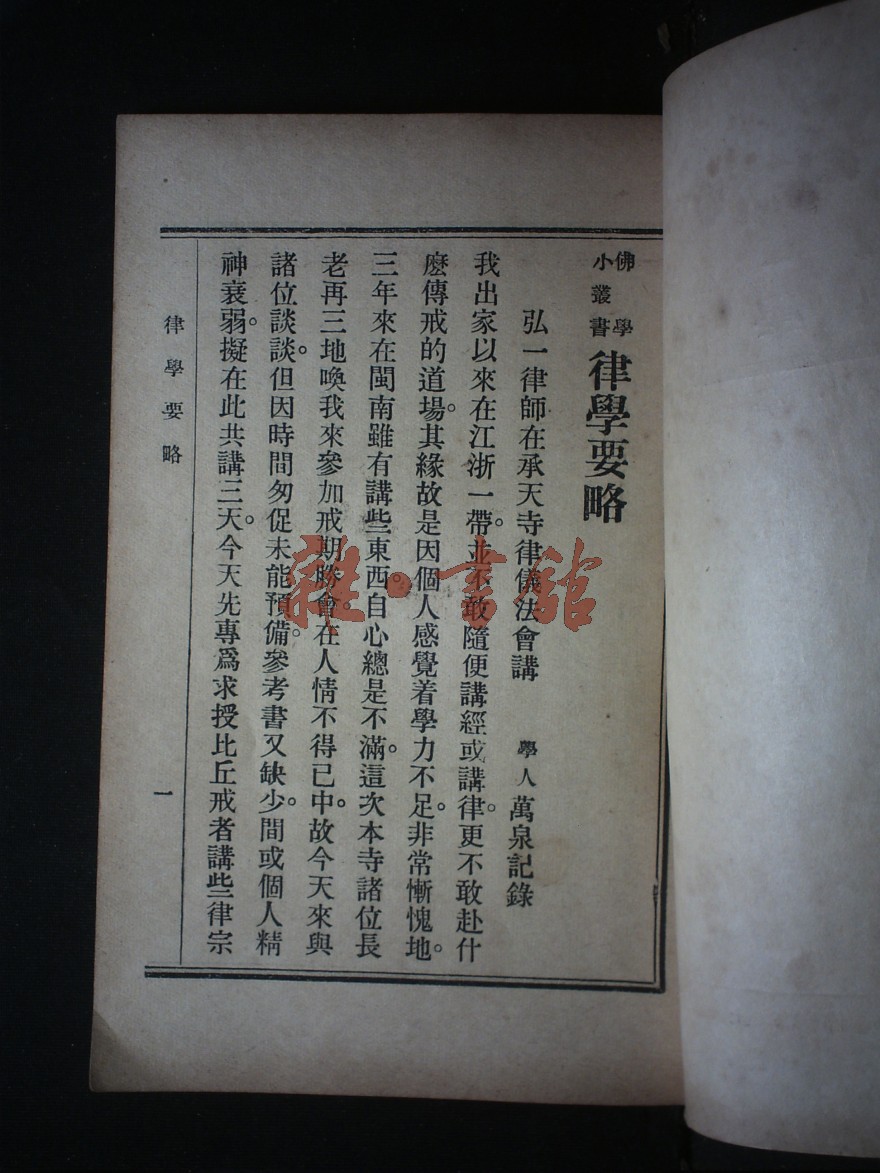 佛學
小叢書
律學要略
弘一律師在承天寺律儀法會講 學人萬泉記錄
我出家以來在江浙一帶。並不敢隨便講經或講律。更不敢赴什
麽傳戒的道場。其緣故是因個人感覺着學力不足。非常慚愧地。
三年來在閩南雖有講些東西。自心總是不滿。這次本寺諸位長
老再三地喚我來參加戒期勝會。在人情不得已中。故今天來與
諸位談談。但因時間匆促未能預備。參考書又缺少。間或個人精
神衰弱。擬在此共講三天。今天先專爲求授比丘戒者講些律宗
律學要略
一
雜·書館